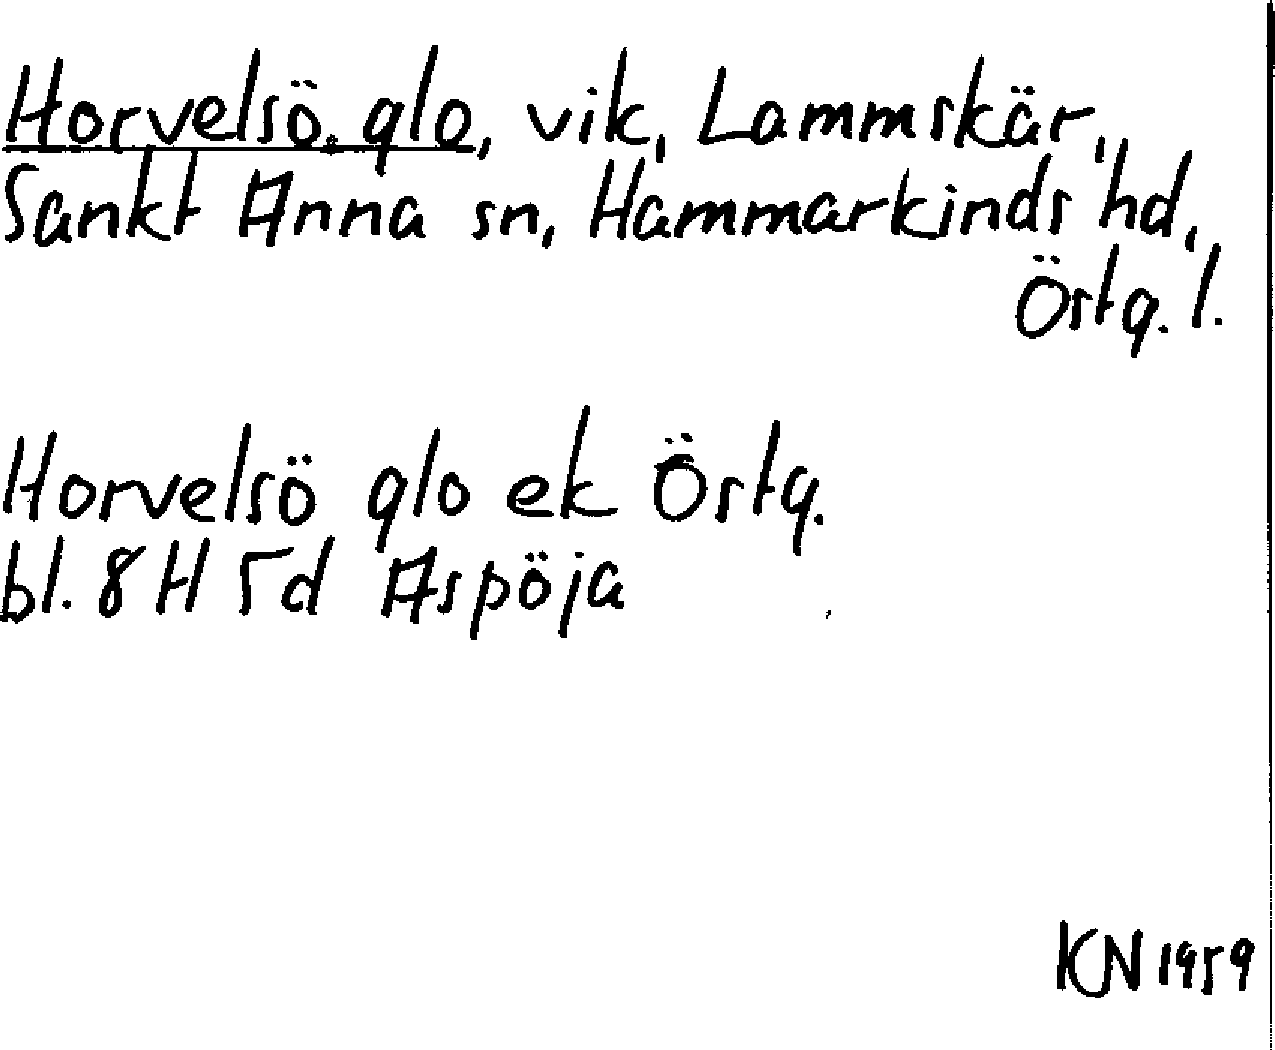 Horvelsö. glo, vik, Lammskär,
Sankt Anna sn, Hammarkinds hd,
Östg. l.
Horvelsö glo ek Östg.
bl. 8H 5d Aspöja
KN 1959